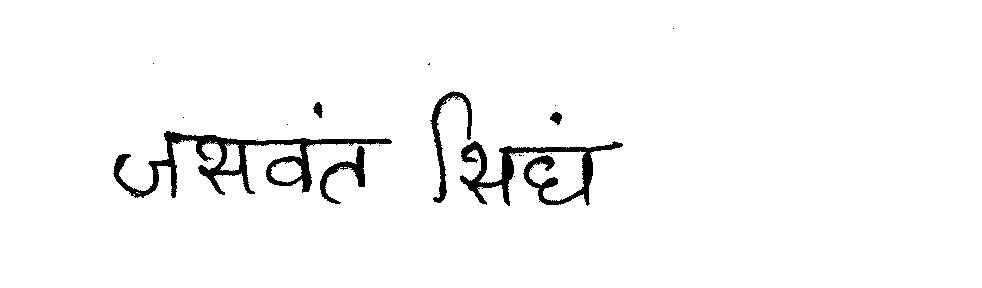 जसवंत सिघं